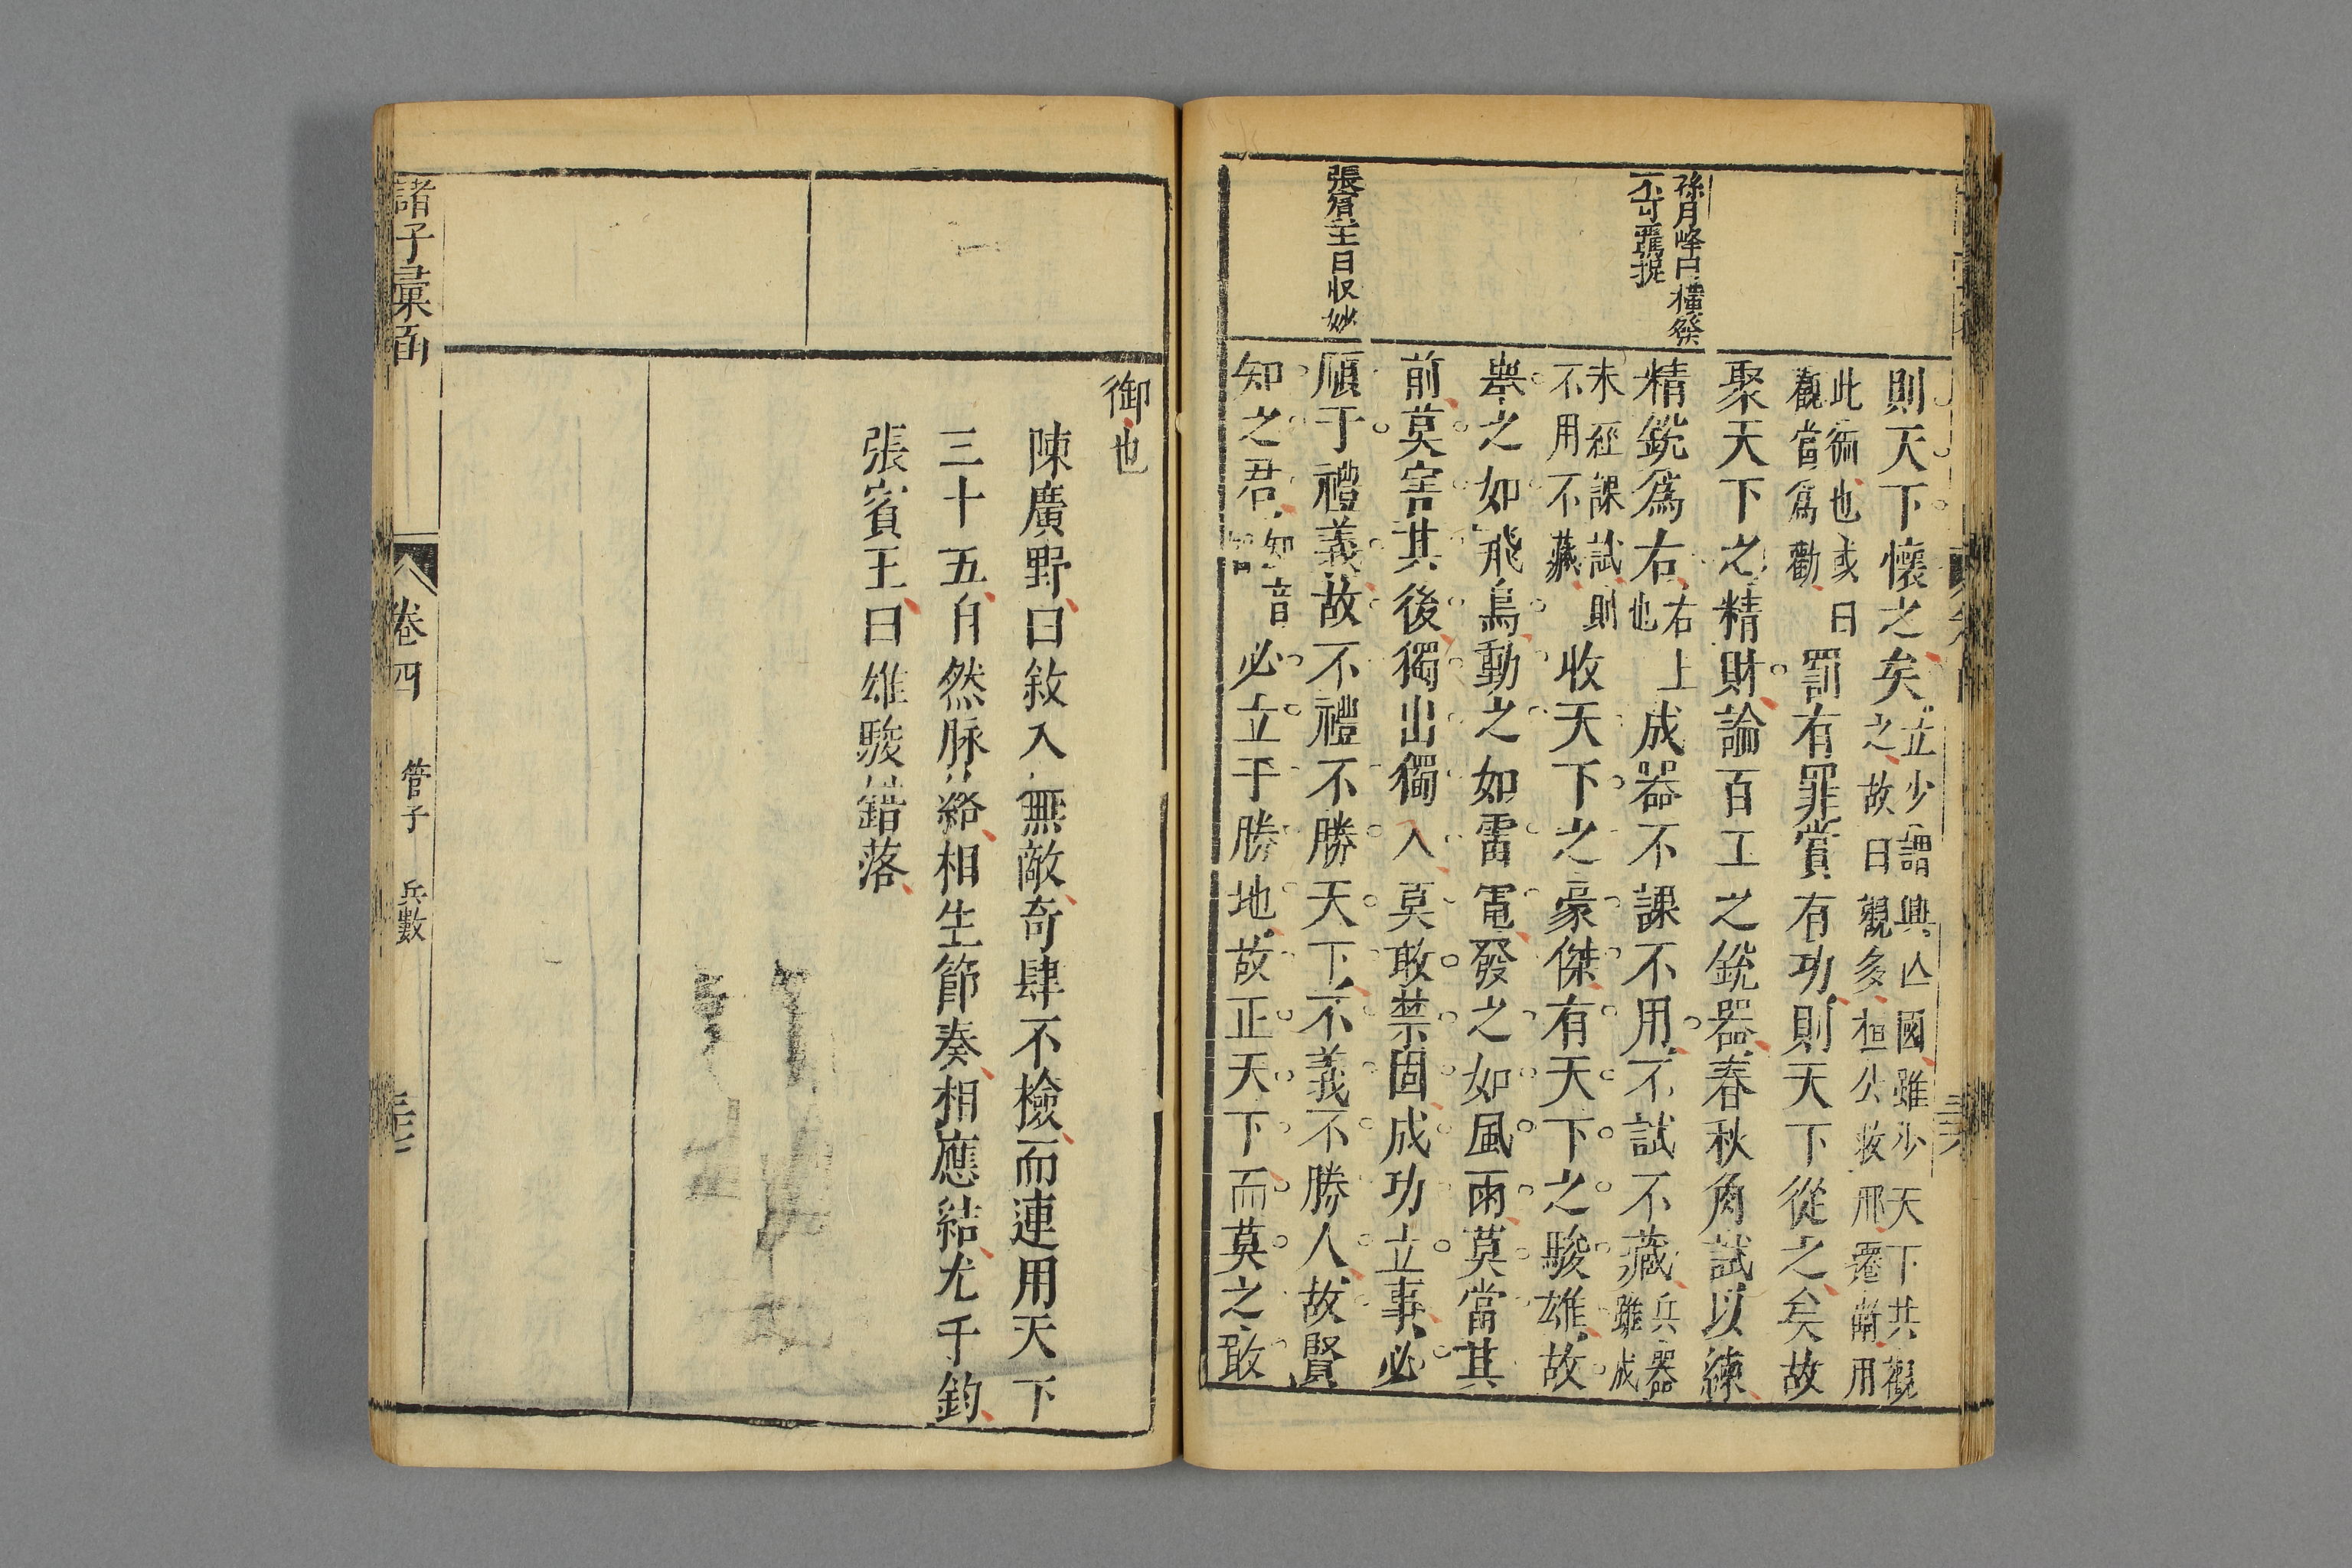 孫月峰曰橫發
不可羈捉
張賓王曰收陡
則天下懷之矣立少謂興亾國雖少天下共觀
之故曰觀多桓公救邢遷衛用
此術也或曰
觀當爲勸罰有罪賞有功則天下從之矣故
聚天下之精財論百工之銳器春秋角試以練
精銳爲右右上
也成器不課不用不試不藏兵器雖成
未經課試則
不用不藏收天下之豪傑有天下之駿雄故
舉之如飛鳥動之如雷電發之如風雨莫當其
前莫害其後獨出獨入莫敢禁固成功立事必
順于禮義故不禮不勝天下不義不勝人故賢
知之君知音
智必立于勝地故正天下而莫之敢
御也
陳廣野曰敘入無敵奇肆不檢而連用天下
三十五自然脉絡相生節奏相應結尤千鈞
張賓王曰雄駿錯落
諸子彙函
卷四
管子
兵數